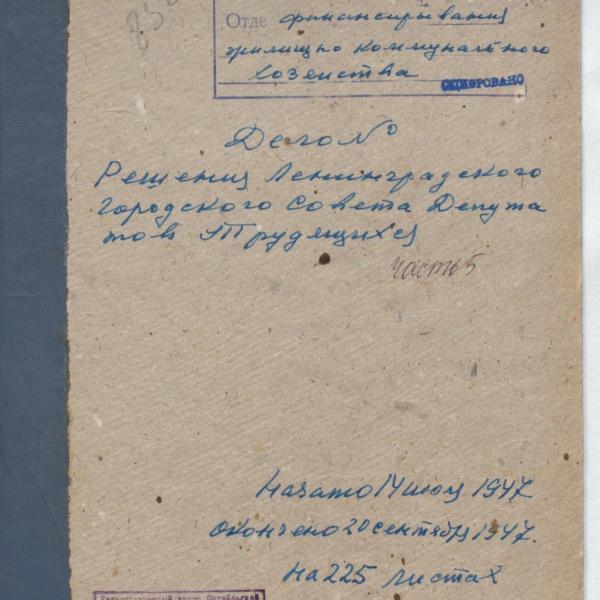 Отде финансирования
жилищно коммунального
хозеиства
ОЦИФРОВАНО
Дело №
Решения Ленинградского
Городского Совета Депута
тов Трудящихся
часть 5
Начато 14 июля 1947
окончено 20 сентября 1947.
на 225 листах
Государственный архив Октябрьской